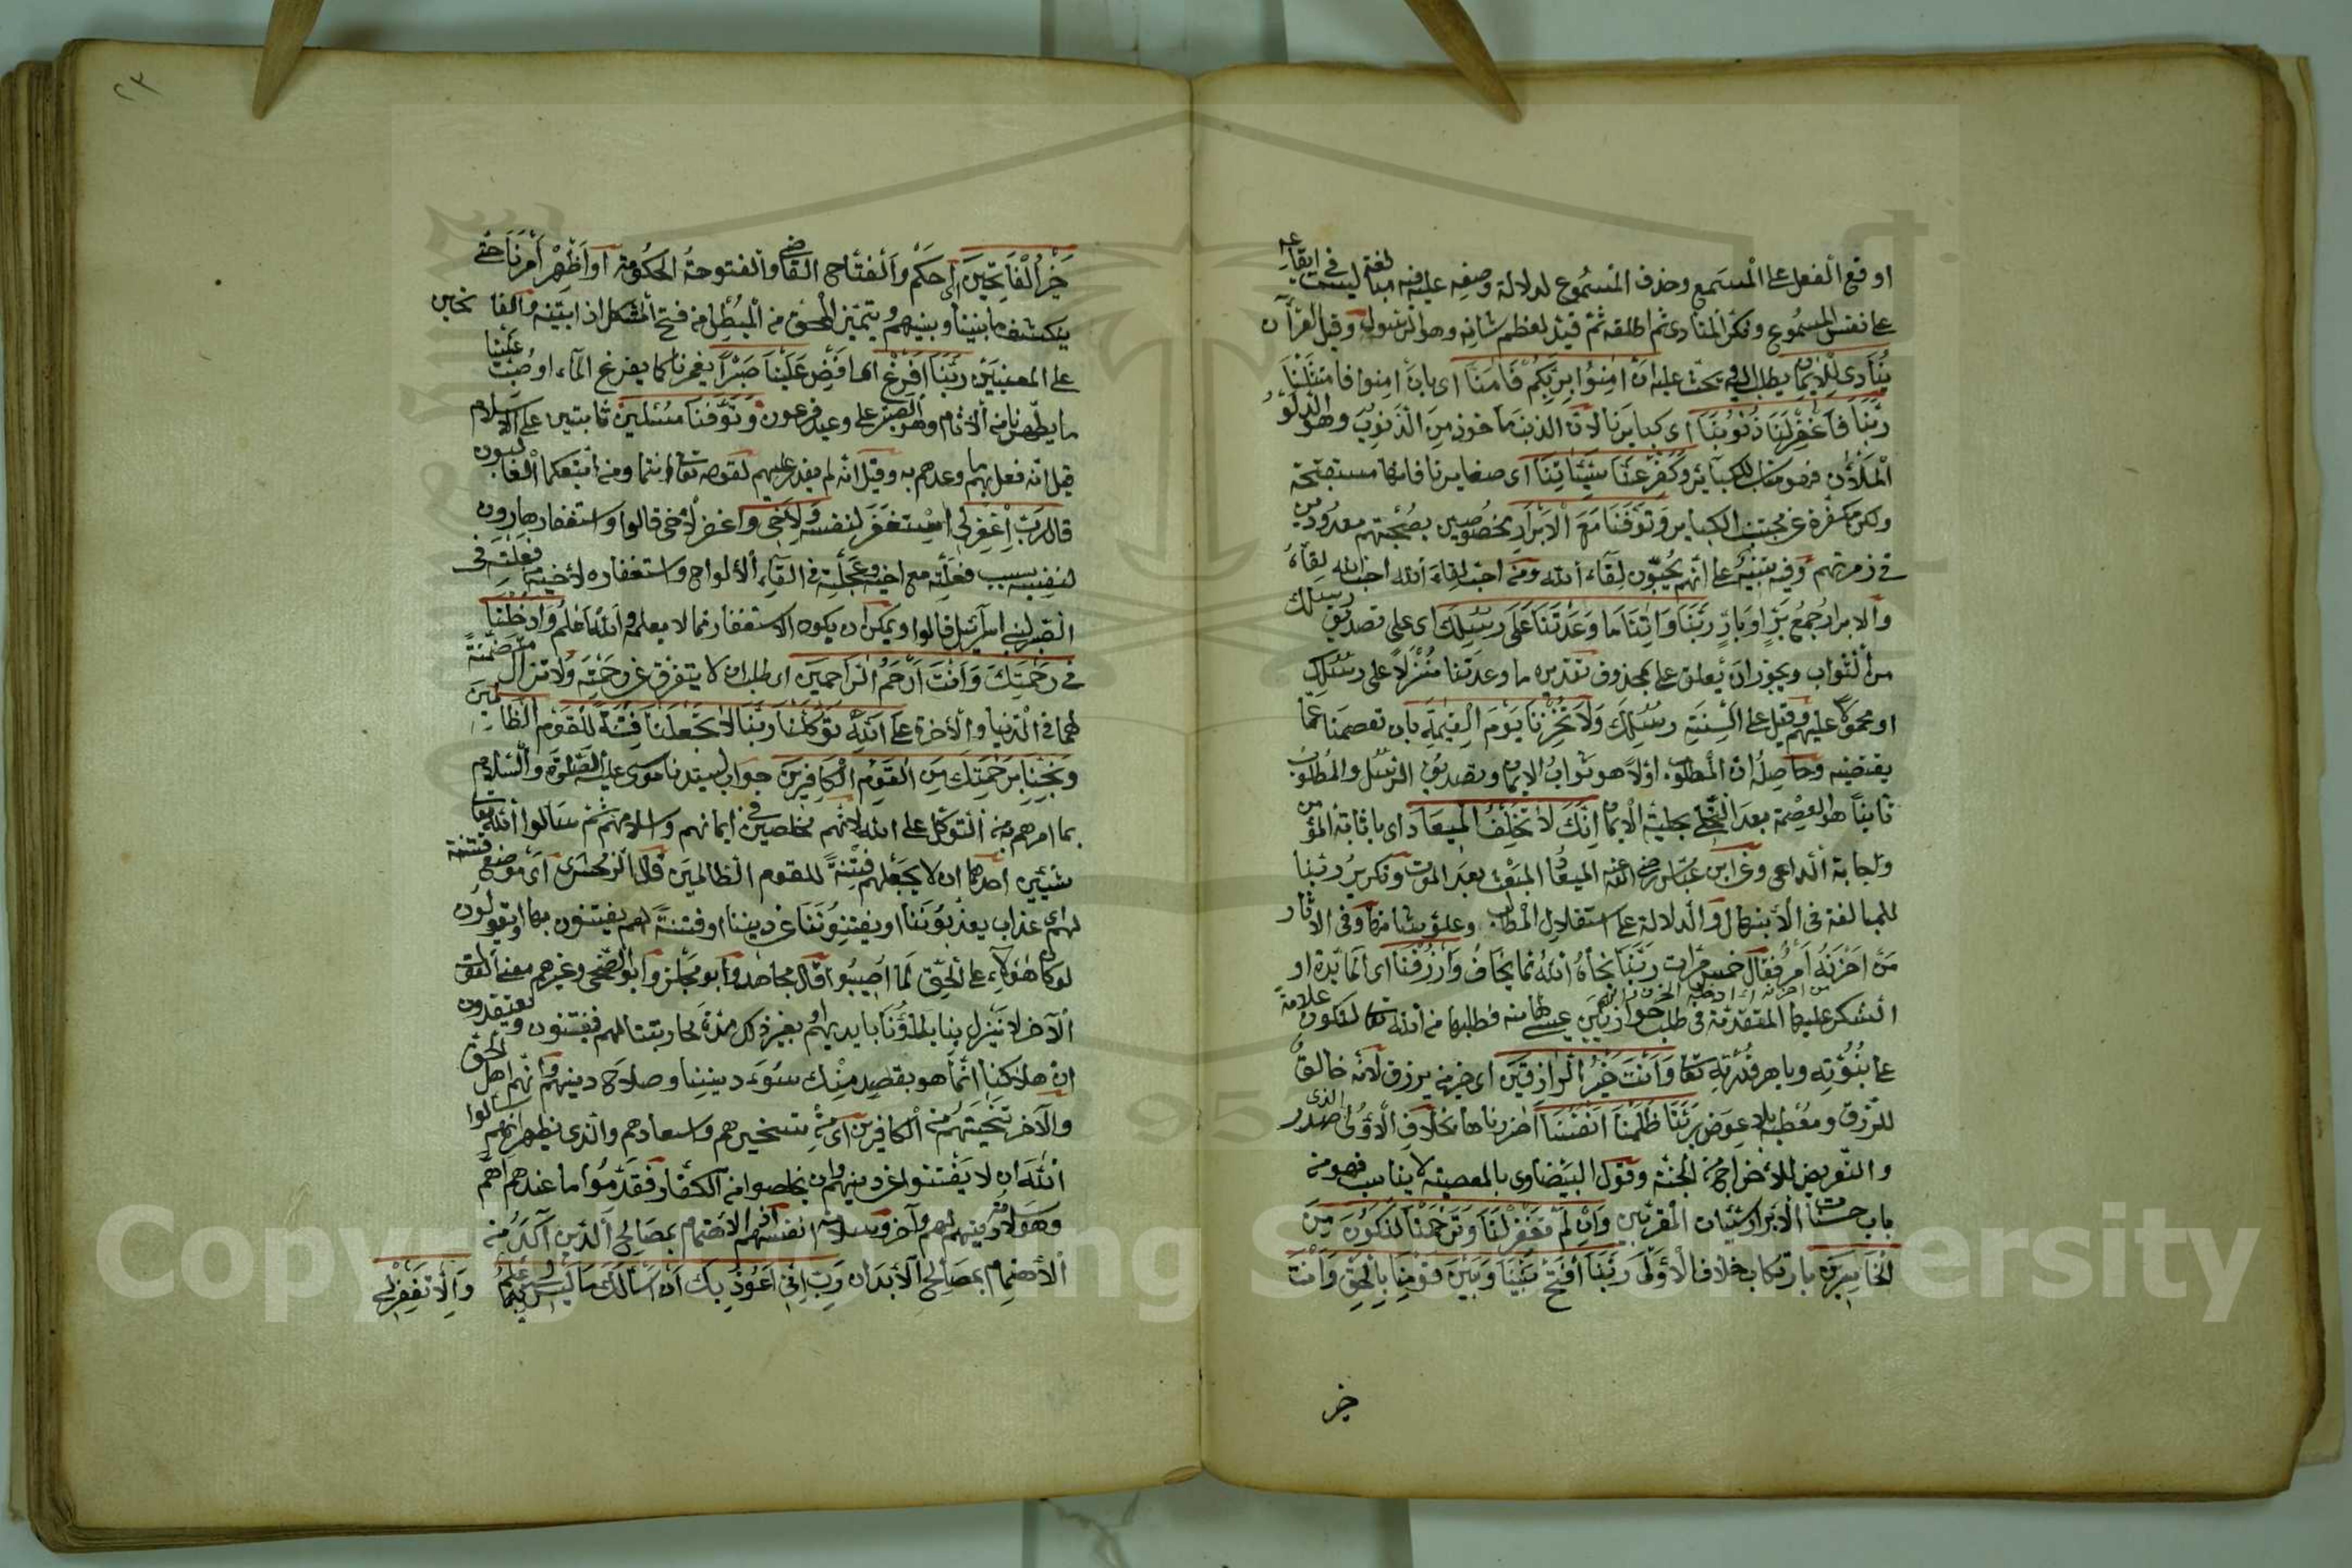 اوقع الفعل على المستمع وحذف المسموع لدلالة وصفه عليه وفيه مبالغة ليست في ايقاعه
على نفس المسموع ونكر المنادى ثم اطلقه ثم قيد تعظيم شانه وهو الرسول وقيل القرآن
ينادى للايمان يطلب اليه ويحث عليه ان امنوا بربكم فامنا اى بان امنوا فامتثلنا
ربنا فاغفر لنا ذنوبنا اى كبايرنا لان الذنب ماخوذ من الذنوب وهو الدلو
الملآن فهو مناسب للكبائر وكفر عنا سيئاتنا اى صغايرنا فانها مستقبحة
ولكن مكفرة عن مجتنب الكباير وتوفنا مع الابرار مخصوصين بصحبتهم معدودين
فى زمرتهم وفيه تنبيه على انهم يحبون لقاء الله ومن احب لقاء الله احب الله لقاءه
والابرار جمع بر او بار ربنا واتنا ما وعدتنا على رسلك اى على تصديق رسلك
من الثواب ويجوز ان يعلق على بمحذوف تقديره ما وعدتنا منزلا على رسلك
او محمولا عليهم وقيل على السنة رسلك ولا تخزنا يوم القيمة بان تعصمنا عما
يقتضيه وحاصله ان المطلوب اولا هو ثواب الايمان وتصديق الرسل والمطلوب
ثانيا هو العصمة بعد التحلى بحلية الايمان انك لا تخلف الميعاد اى باثابة المؤمن
واجابة الداعى وعن ابن عباس رضى الله عنه الميعاد المبعث بعد الموت وتكرير ربنا
للمبالغة فى الابتهال والدلالة على استقلال المطالب وعلو شانها وفى الآثار
من احزنه امر فقال خمس مرات ربنا نجاه الله مما يخاف وارزقنا اى المائدة او
الشكر عليها المتقدمة فى طلب حوارييين عيسى لها منه فطلبها من الله تعا لتكون علامة
على نبوته وباهر قدرته تعا وانت خير الرازقين اى خير من يرزق لانه خالق
للرزق ومعطيه بلا عوض ربنا ظلمنا انفسنا اضررناها بخلاف الاولى الذى صدر
والتعريض للاخراج من الجنة وقول البيضاوى بالمعصية لا يناسب فهو من
باب حسنات الابرار سيئات المقربين وان لم تغفر لنا وترحمنا لنكونن من
الخاسرين بارتكاب خلاف الاولى ربنا افتح بيننا وبين قومنا بالحق وانت
خير
٢٣
خير الفاتحين اى احكم والفتاح القاضى والفتوحة الحكومة او اظهر امرنا حتى
ينكشف ما بيننا وبينهم ويتميز المحق من المبطل من فتح المشكل اذا بينه والفاتحين
على المعنيين ربنا افرغ اى افض علينا صبرا يغمرنا كما يفرغ الماء او صب علينا
ما يطهرنا من الآثام وهو الصبر على وعيد فرعون وتوفنا مسلمين ثابتين على الاسلام
قيل انه فعل بهم ما وعدهم به وقيل انه لم يقدر عليهم لقوله تعا انتما ومن اتبعكما الغالبون
قال رب اغفر لى استغفر لنفسه ولاخى واغفر لاخى قالوا واستغفار هارون
لنفسه بسبب فعلته مع اخيه وعجلته فى القاء الالواح واستغفاره لاخيه من فعلته فى
الصبر لبنى اسرآئيل قالوا ويمكن ان يكون الاستغفار مما لا يعلمه والله اعلم وادخلنا
فى رحمتك وانت ارحم الراحمين اى طلب ان لا يتفرق عن رحمته ولا تزال متضمنة
لهما فى الدنيا والآخرة على الله توكلنا ربنا لا تجعلنا فتنة للقوم الظالمين
ونجنا برحمتك من القوم الكافرين جواب لسيدنا موسى عليه الصلوة والسلام
بما امرهم به من التوكل على الله لانهم مخلصين فى ايمانهم واسلامهم ثم سالوا الله تعا
شيئين احدهما ان لا يجعلهم فتنة للقوم الظالمين قال الزمخشرى اى موضع فتنة
لهم اى عذاب يعذبوننا او يفتنوننا عن ديننا او فتنة لهم يفتنون بها ويقولون
لو كان هؤلاء على الحق لما اصيبوا قال مجاهد وابو مجلز وابو الضحى وغيرهم معنى القول
الآخر لا تنزل بنا بلاؤنا بايديهم او بغير ذلك مدة محاربتنا لهم فيفتنون ويعتقدون
ان هلاكنا انما هو بقصد منك لسوء ديننا وصلاح دينهم وانهم اهل الحق
والآخر تنجيتهم من الكافرين اى من تسخيرهم واستعبادهم والذى يظهر انهم سالوا
الله ان لا يفتنوا عن دينهم وان يخلصوا من الكفار فقدموا ما عندهم اهم
وهو سلامة دينهم لهم واخروا سلامة انفسهم اذ الاهتمام بمصالح الدين آكد من
الاهتمام بمصالح الابدان رب انى اعوذ بك ان اسالك ما ليس لى به علم والا تغفر لى
Copyright © King Saud University
1957